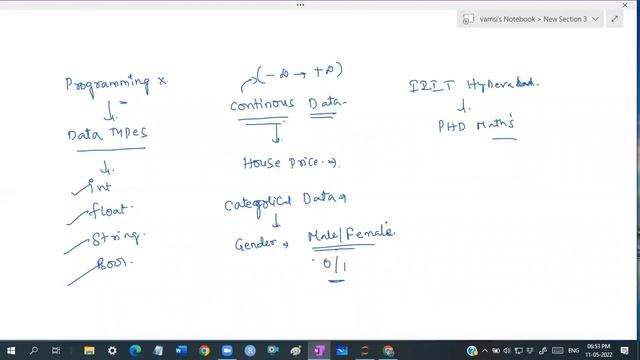 vamsi's Notebook > New Section 3
Programming x
Data Types
int
float
String
Bool
(-∞ → +∞)
Continous Data
House Price
Categorical Data
Gender → Male/Female
0/1
IIIT Hyderabad
PHD Maths
ENG
06:53 PM
11-05-2022